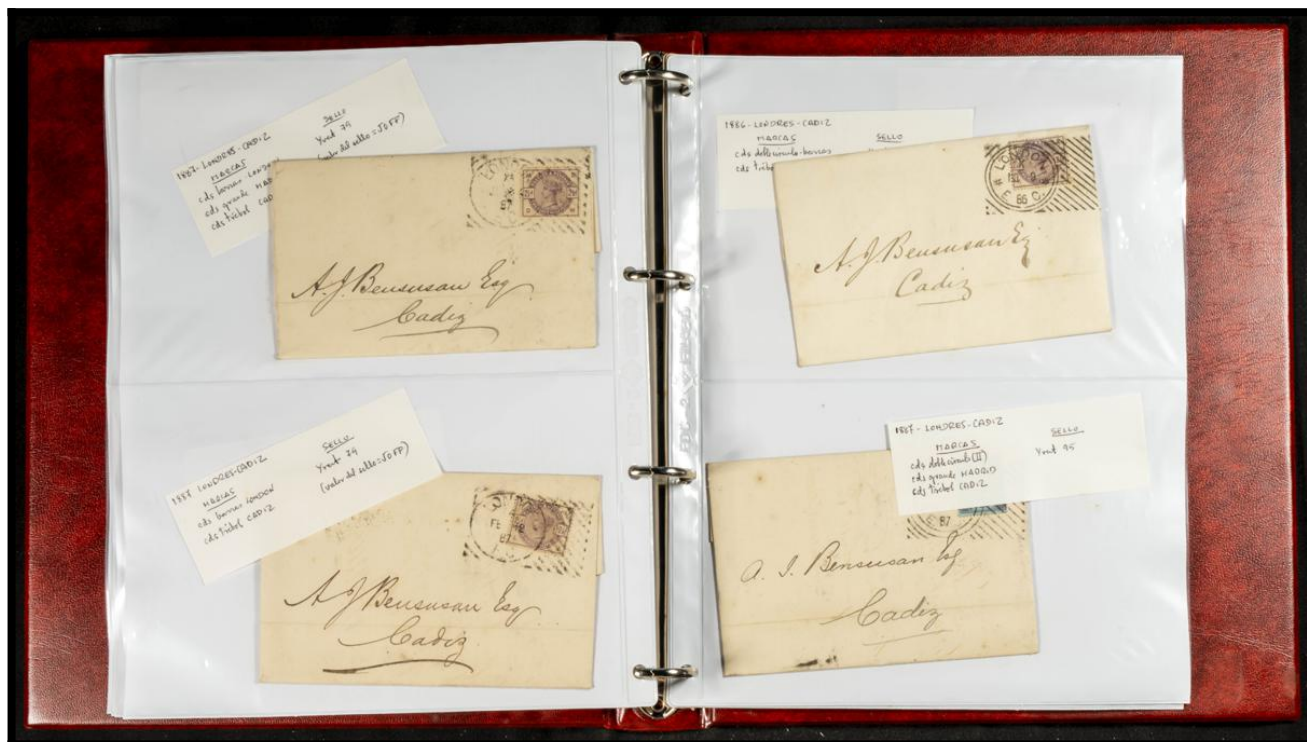 1887-LONDRES-CADIZ
MARCAS
cds barras LONDON
cds grande
cds trébol
SELLO
Yvert 79
A.J. Bensusan Esq
Cadiz
1886-LONDRES-CADIZ
MARCAS
cds doblecírculo-barras
cds
SELLO
LONDON
86
A.J. Bensusan Esq
Cadiz
1887 LONDRES-CADIZ
MARCAS
cds barras LONDON
cds trébol CADIZ
SELLO
Yvert 79
(valor del sello = 50FF)
FE
87
A J Bensusan Esq
Cadiz
1887-LONDRES-CADIZ
MARCAS
cds doblecírculo (II)
cds grande MADRID
cds trébol CADIZ
SELLO
Yvert 95
87
A. J. Bensusan Esq
Cadiz